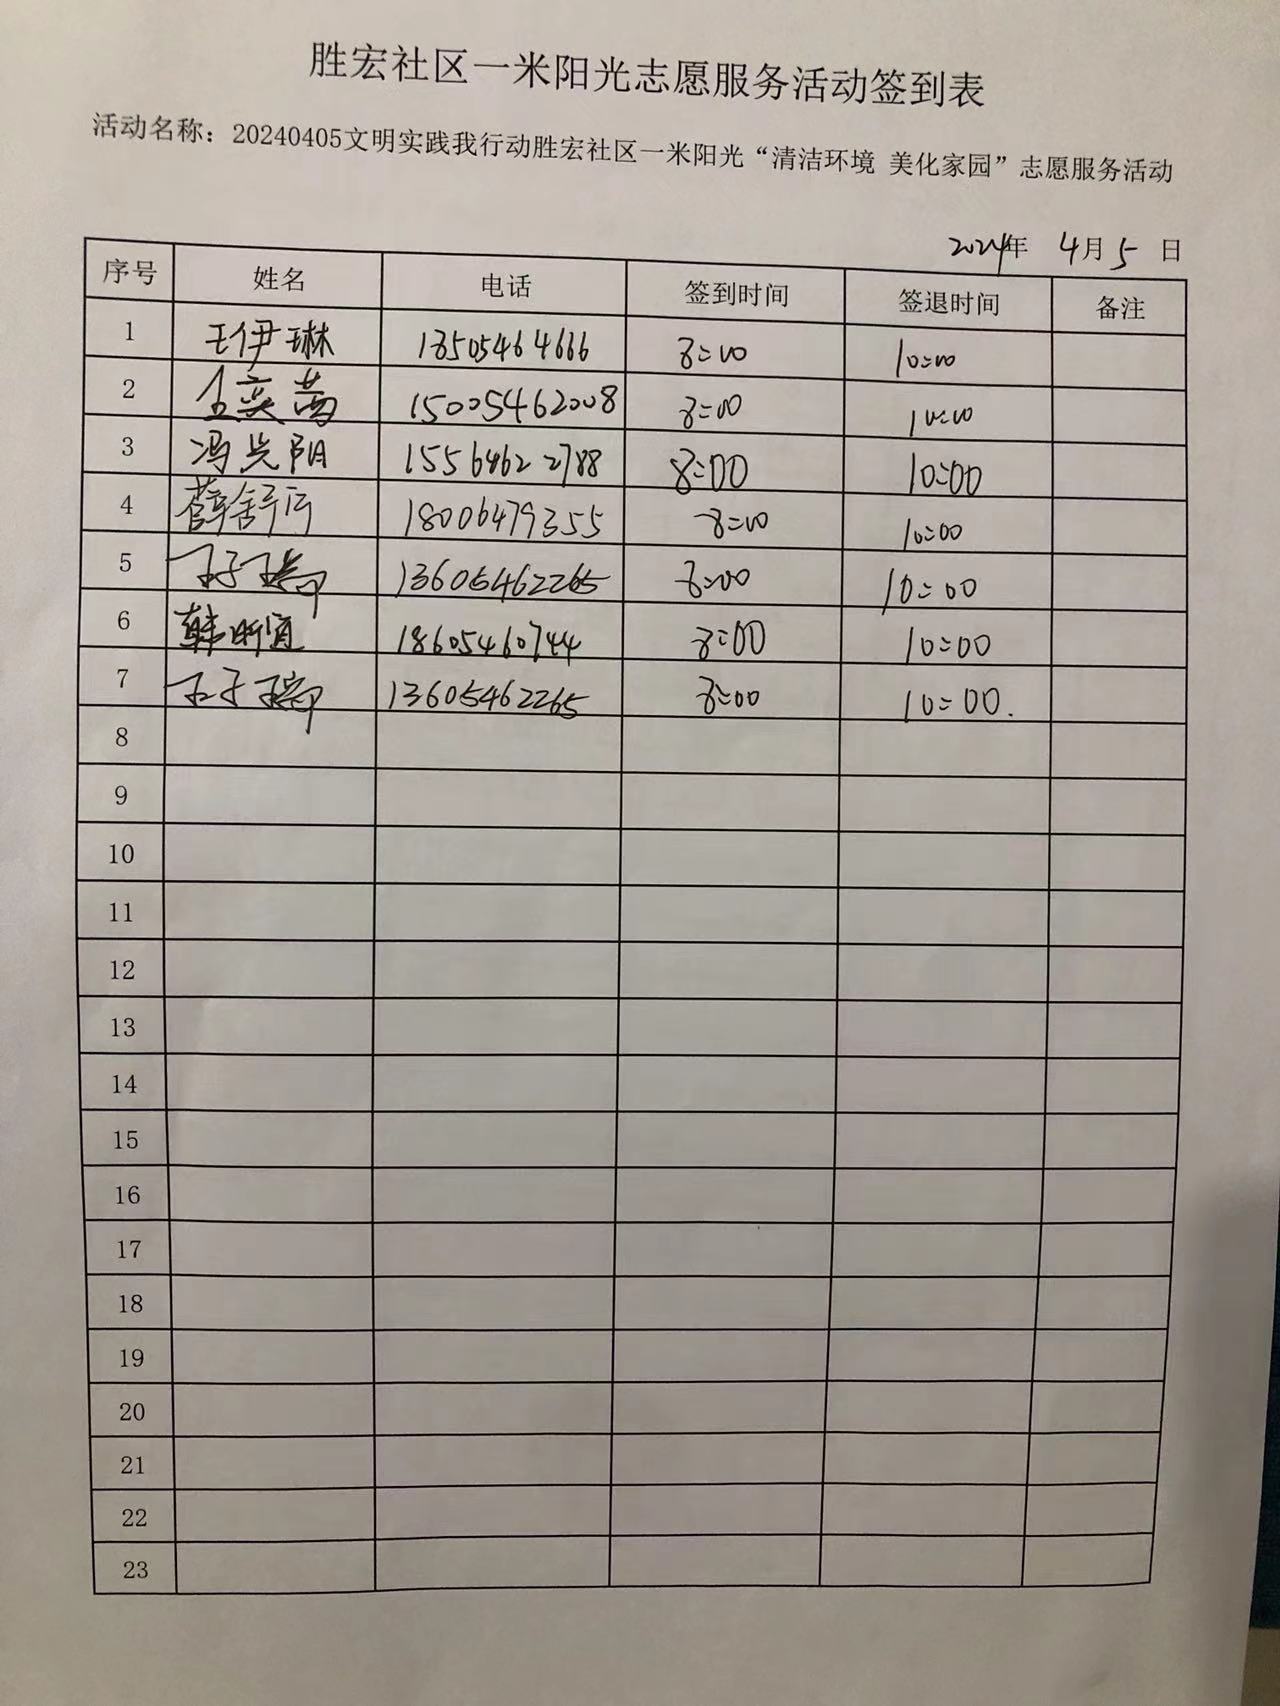 胜宏社区一米阳光志愿服务活动签到表
活动名称：20240405文明实践我行动胜宏社区一米阳光“清洁环境 美化家园”志愿服务活动
2024年 4月5日
序号 姓名 电话 签到时间 签退时间 备注
1 王伊琳 18505464666 8:00 10:00
2 15005462008 8:00 10:00
3 冯 阳 15564622788 8:00 10:00
4 薛舒 18006479355 8:00 10:00
5 13605462265 8:00 10:00
6 韩昕 18605460744 8:00 10:00
7 13605462265 8:00 10:00.
8
9
10
11
12
13
14
15
16
17
18
19
20
21
22
23